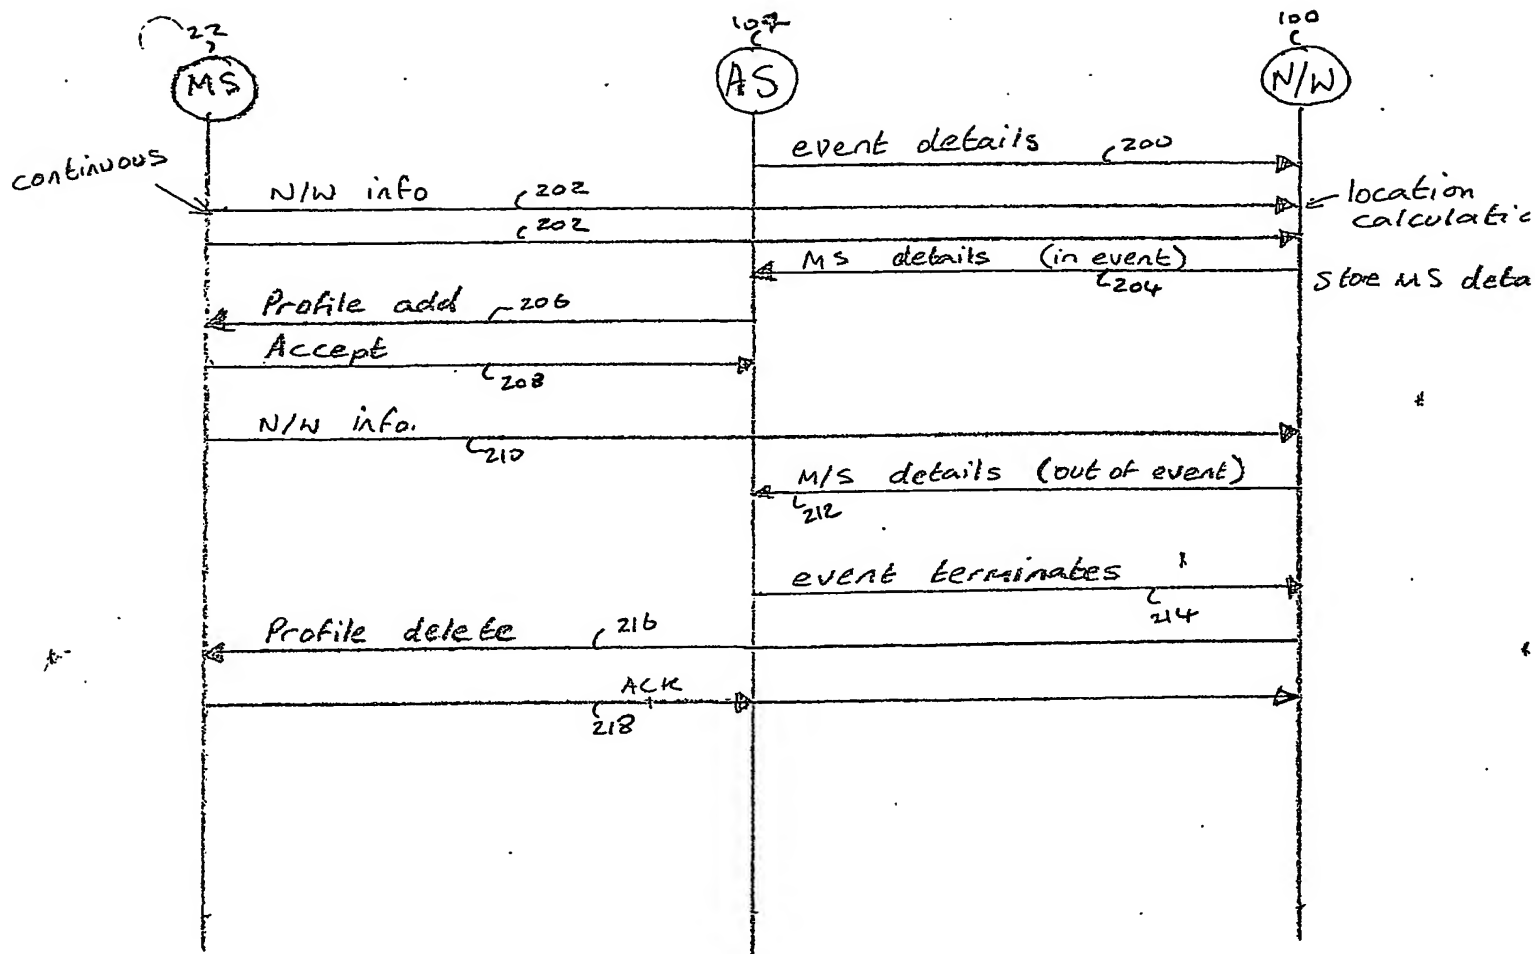 22
100
MS
AS
N/W
event details 200
continuous
N/W info 202
location
202
MS details (in event)
204
Profile add 206
Accept
208
N/W info.
210
M/S details (out of event)
212
event terminates
214
Profile delete 216
ACK
218